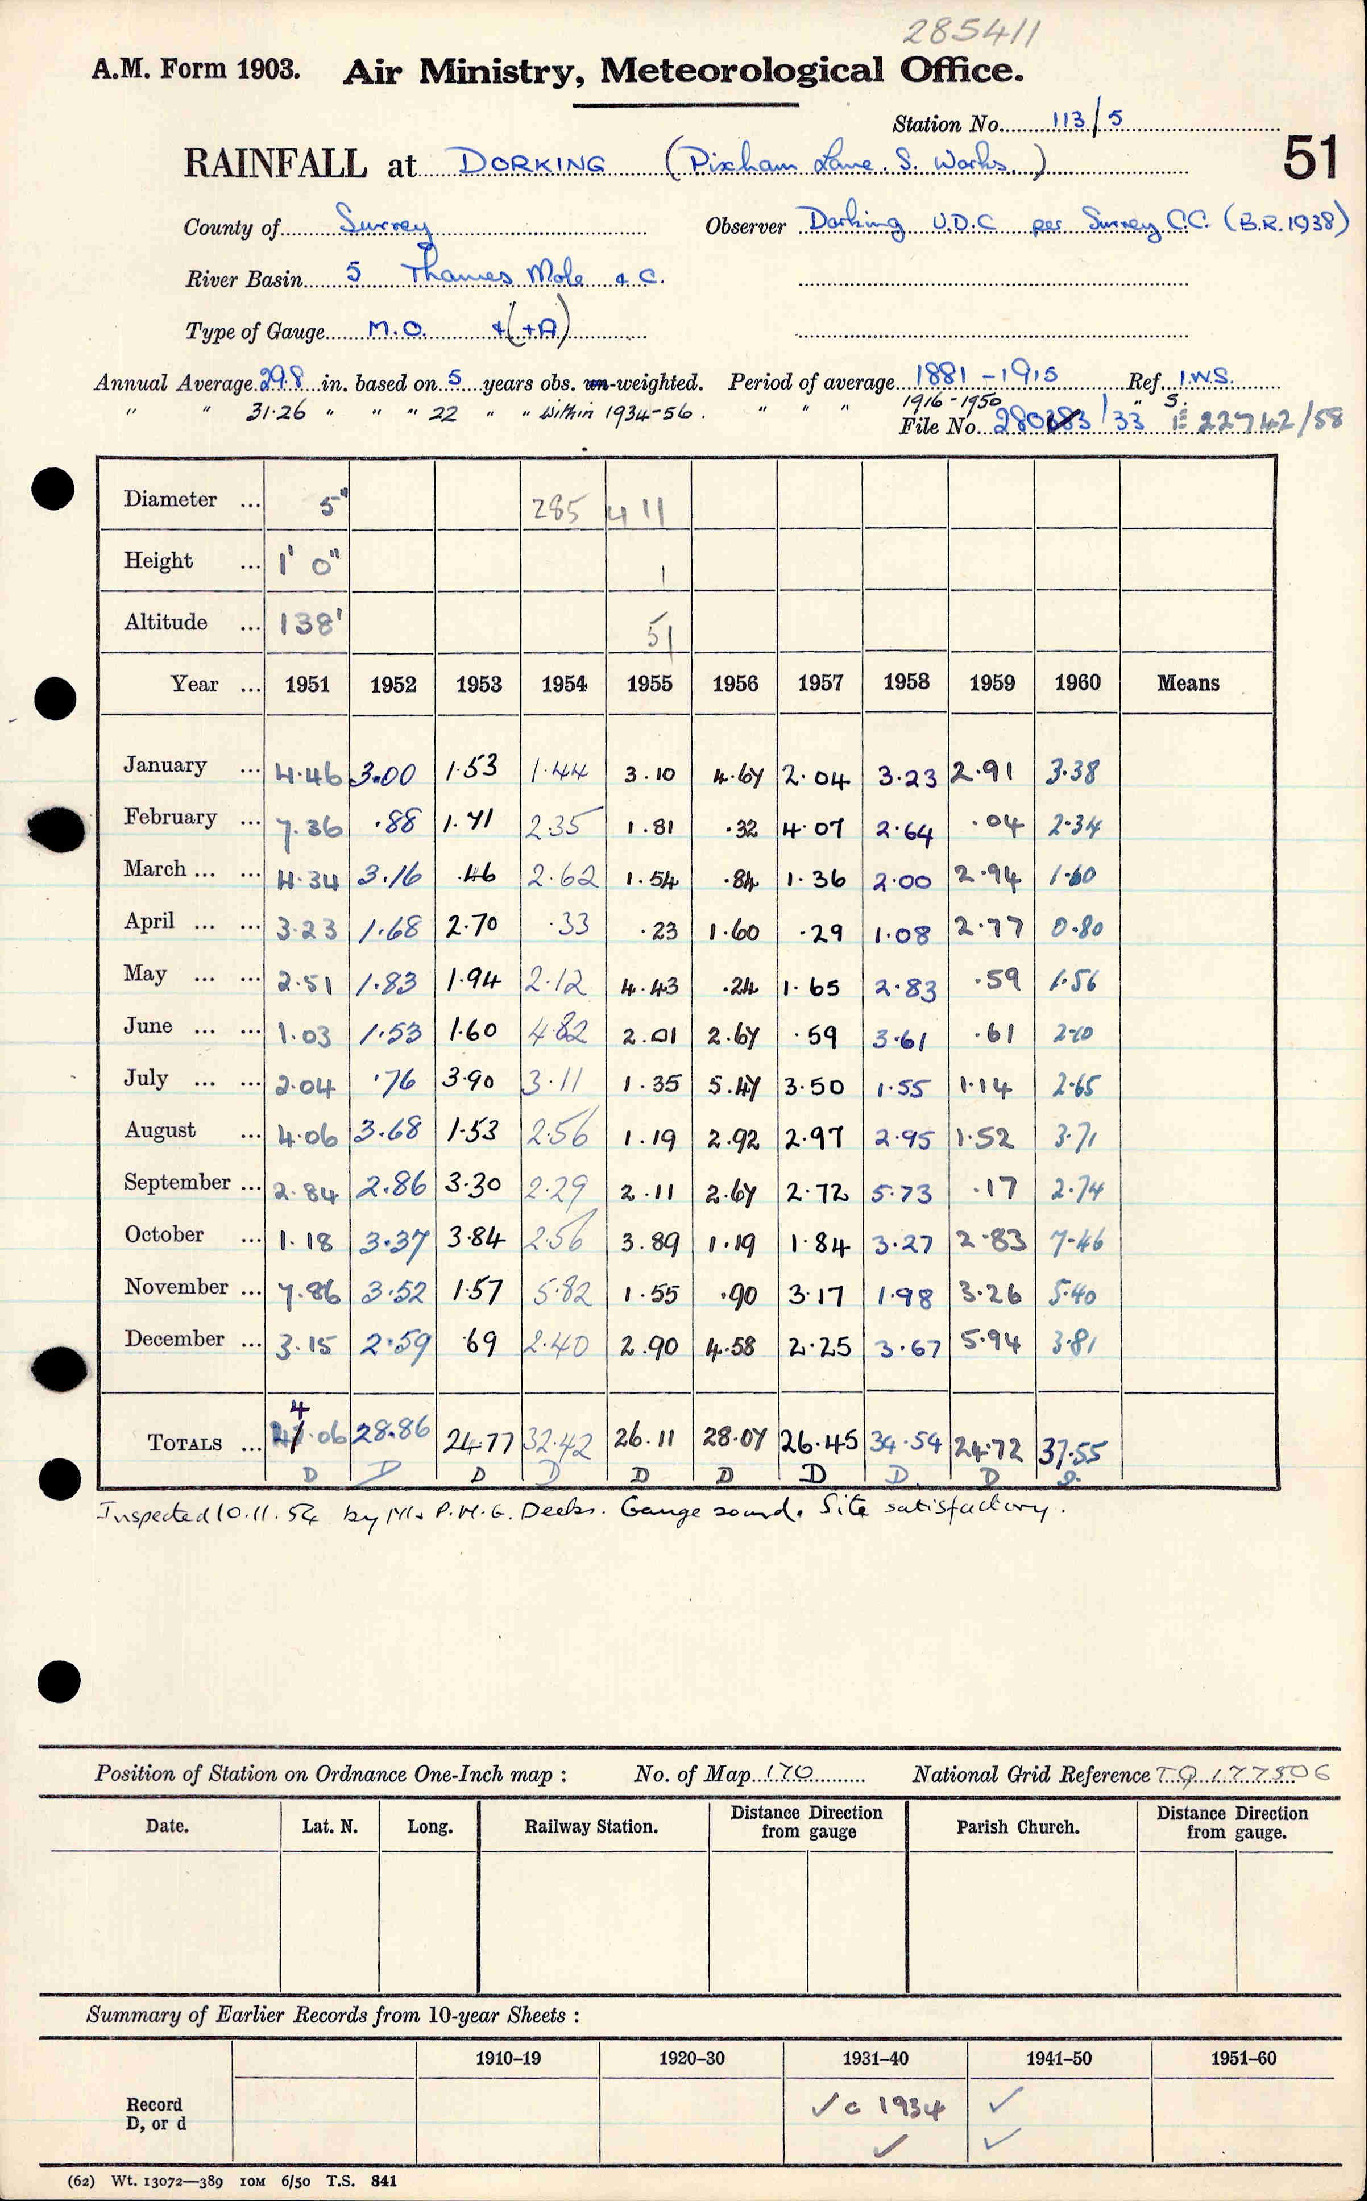 285411
A.M. Form 1903. Air Ministry, Meteorological Office.
Station No. 113/5
51
RAINFALL at DORKING (Pixham Lane. S. Works)
County of Surrey Observer Dorking U.D.C per Surrey C.C. (B.R. 1938)
River Basin 5 Thames Mole & C.
Type of Gauge M.O. +(+A)
Annual Average 29.8 in. based on 5 years obs. un-weighted. Period of average 1881-1915 Ref. I.W.S.
" " 31.26 " " " 22 " " within 1934-56. " " " 1916-1950 " S.
File No. 280383/33 E 22742/58
Diameter ... 5" 285 411
Height ... 1' 0" 1
Altitude ... 138' 51
Year ... 1951 1952 1953 1954 1955 1956 1957 1958 1959 1960 Means
January ... 4.46 3.00 1.53 1.44 3.10 4.67 2.04 3.23 2.91 3.38
February ... 7.36 .88 1.71 2.35 1.81 .32 4.07 2.64 .04 2.34
March ... ... 4.34 3.16 .46 2.62 1.54 .84 1.36 2.00 2.94 1.60
April ... ... 3.23 1.68 2.70 .33 .23 1.60 .29 1.08 2.77 0.80
May ... ... 2.51 1.83 1.94 2.12 4.43 .24 1.65 2.83 .59 1.56
June ... ... 1.03 1.53 1.60 4.82 2.01 2.67 .59 3.61 .61 2.10
July ... ... 2.04 .76 3.90 3.11 1.35 5.47 3.50 1.55 1.14 2.65
August ... 4.06 3.68 1.53 2.56 1.19 2.92 2.97 2.95 1.52 3.71
September ... 2.84 2.86 3.30 2.29 2.11 2.67 2.72 5.73 .17 2.74
October ... 1.18 3.37 3.84 2.56 3.89 1.19 1.84 3.27 2.83 7.46
November ... 7.86 3.52 1.57 5.82 1.55 .90 3.17 1.98 3.26 5.40
December ... 3.15 2.59 .69 2.40 2.90 4.58 2.25 3.67 5.94 3.81
TOTALS ... 44.06 28.86 24.77 32.42 26.11 28.07 26.45 34.54 24.72 37.55
D D D D D D D D D
Inspected 10.11.54 by Mr P.M.G. Deeks. Gauge sound. Site satisfactory.
Position of Station on Ordnance One-Inch map : No. of Map 170 National Grid Reference TQ 177506
Date. Lat. N. Long. Railway Station. Distance Direction from gauge Parish Church. Distance Direction from gauge.
Summary of Earlier Records from 10-year Sheets :
1910–19 1920–30 1931–40 1941–50 1951–60
Record ✓ c 1934 ✓
D, or d ✓ ✓
(62) Wt. 13072—389 10M 6/50 T.S. 841